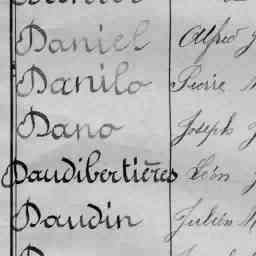 Daniel Alfred J
Danilo Pierre
Dano Joseph J
Daudibertières Léon J
Daudin Julien M